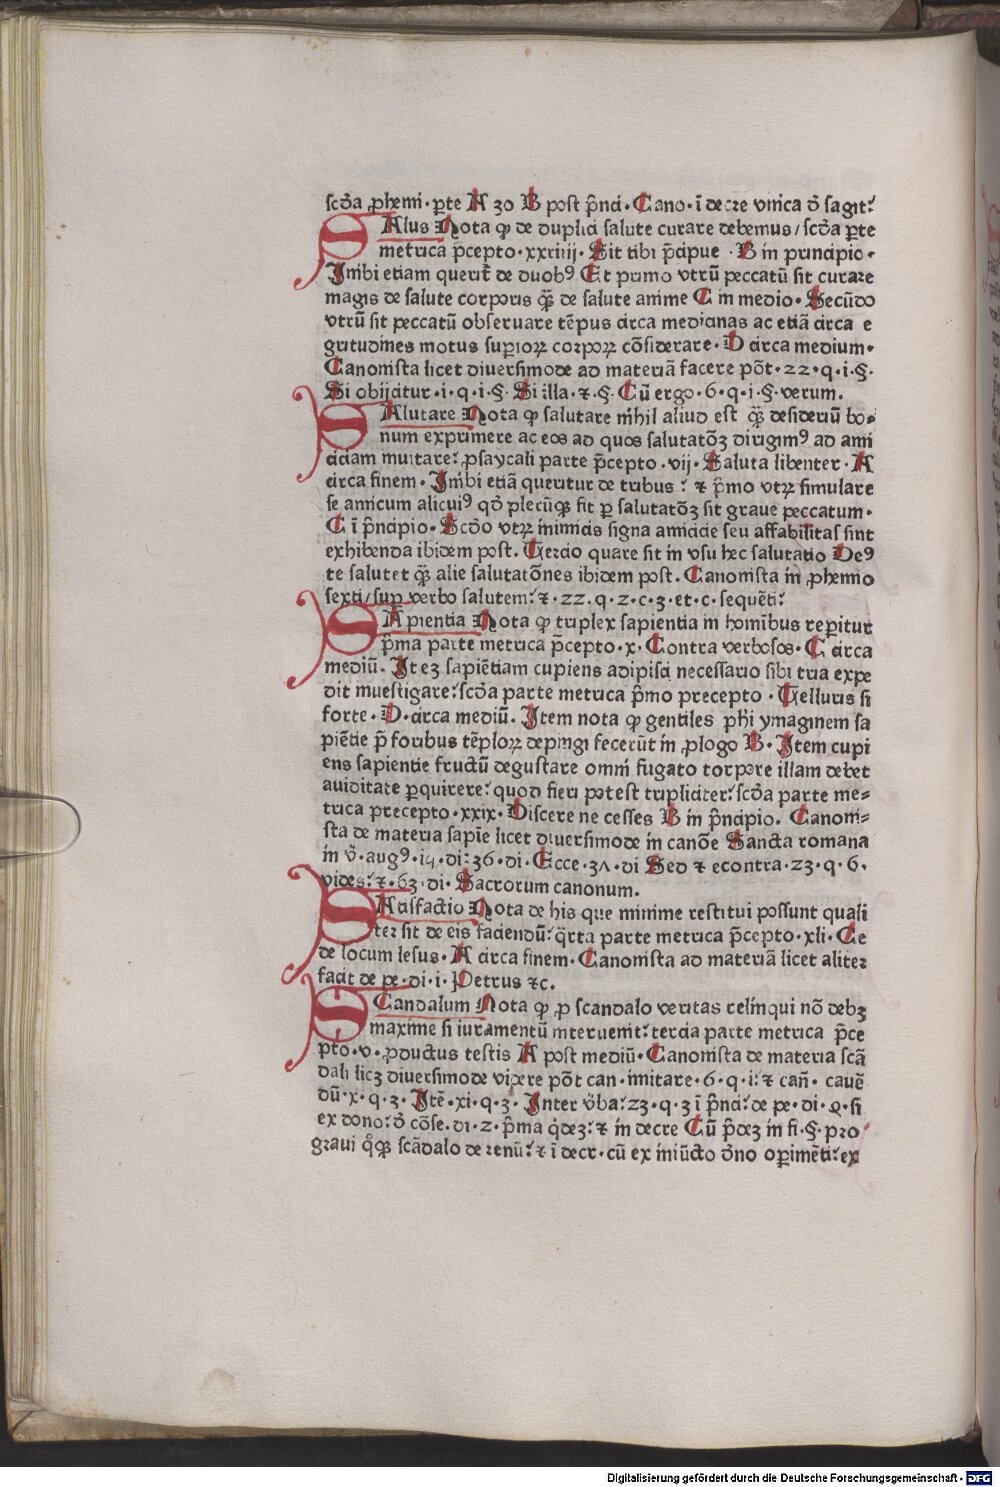 scd̄a ꝓhemi · ꝑte A 30 B post p̄nci · Cano · ī decre vnica ō sagit᷑
SAlus Nota ꝙ de duplici salute curare debemus / scd̄a ꝑte
metrica p̄cepto · xxiiij · Sit tibi p̄cipue · B in principio ·
Inibi etiam querit᷑ de duobꝰ Et primo vtrū peccatū sit curare
magis de salute corporis qᷓꝫ de salute anime C in medio · Secūdo
vtrū sit peccatū obseruare tēpus circa medicinas ac etiā circa e
gritudines motus superioꝝ corpoꝝ cōsiderare · D circa medium ·
Canonista licet diuersimode ad materiā facere pōt · 22 · q · i · § ·
Si obijcitur · i · q · i · § · Si illa · ⁊ · § · Cū ergo · 6 · q · i · § · verum .
SAlutare Nota ꝙ salutare nihil aliud est qᷓꝫ desideriū bo⸗
num exprimere ac eos ad quos salutatōꝫ dirigimꝰ ad ami
ciciam inuitare᷑ ꝓsaycali parte p̄cepto · vij · Saluta libenter · A
circa finem · Inibi etiā queritur de tribus ᷑ ⁊ p̄mo vtꝝ simulare
se amicum alicuiꝰ qd̄ plerūqꝫ fit ꝑ salutatōꝫ sit graue peccatum ·
C ī p̄ncipio · Scd̄o vtꝝ inimicis signa amicicie seu affabilitas sint
exhibenda ibidem post . Tercio quare sit in vsu hec salutatio Deꝰ
te salutet qᷓꝫ alie salutatōnes ibidem post . Canonista in ꝓhemio
sexti / suꝑ verbo salutem᷑ ⁊ · 22 · q · 2 · c · 3 · et · c · sequēti᷑
SApientia Nota ꝙ triplex sapientia in hominibus reꝑitur
p̄ma parte metrica p̄cepto · x · Contra verbosos · C circa
mediū . Iteꝫ sapiētiam cupiens adipisci necessario sibi tria expe
dit inuestigare᷑ scd̄a parte metrica p̄mo precepto · Telluris si
forte · D · circa mediū . Item nota ꝙ gentiles phi ymaginem sa
piētie p̄ foribus tēploꝝ depingi fecerūt in ꝓlogo B · Item cupi
ens sapientie fructū degustare omni fugato torpore illam debet
auiditate ꝑquirere᷑ quod fieri potest tripliciter᷑ scd̄a parte me⸗
trica precepto · xxix · Discere ne cesses B in p̄ncipio . Canoni⸗
sta de materia sapie licet diuersimode in canōe Sancta romana
in v̄ · augꝰ · iq · di᷑ 36 · di · Ecce · 37 · di Sed ⁊ econtra · 23 · q · 6 ·
vides᷑ ⁊ · 63 · di · Sacrorum canonum .
SAtisfactio Nota de his que minime restitui possunt quali
ter sit de eis faciendū᷑ q̄rta parte metrica p̄cepto · xli · Ce
de locum lesus · A circa finem · Canonista ad materiā licet aliter
facit de pe · di · i · Petrus ⁊c .
SCandalum Nota ꝙ ꝓ scandalo veritas relinqui nō debꝫ
maxime si iuramentū interuenit᷑ tercia parte metrica p̄ce
pto · v · ꝓductus testis A post mediū · Canonista de materia scā
dali licꝫ diuersimode videre pōt can · imitare · 6 · q · i᷑ ⁊ cañ · cauē
dū · x · q · 3 · Itē · xi · q · 3 · Inter v̄ba᷑ 23 · q · 3 ī p̄nci᷑ de pe · di · 2 · si
ex dono᷑ ō cōse · di · 2 · p̄ma q̄deꝫ᷑ ⁊ in decre Cū p̄deꝫ in fi · § · pro
graui qͦqꝫ scādalo de renū᷑ ⁊ ī decr · cū ex iniūcto ōno oꝑimēti᷑ ex
Digitalisierung gefördert durch die Deutsche Forschungsgemeinschaft · DFG